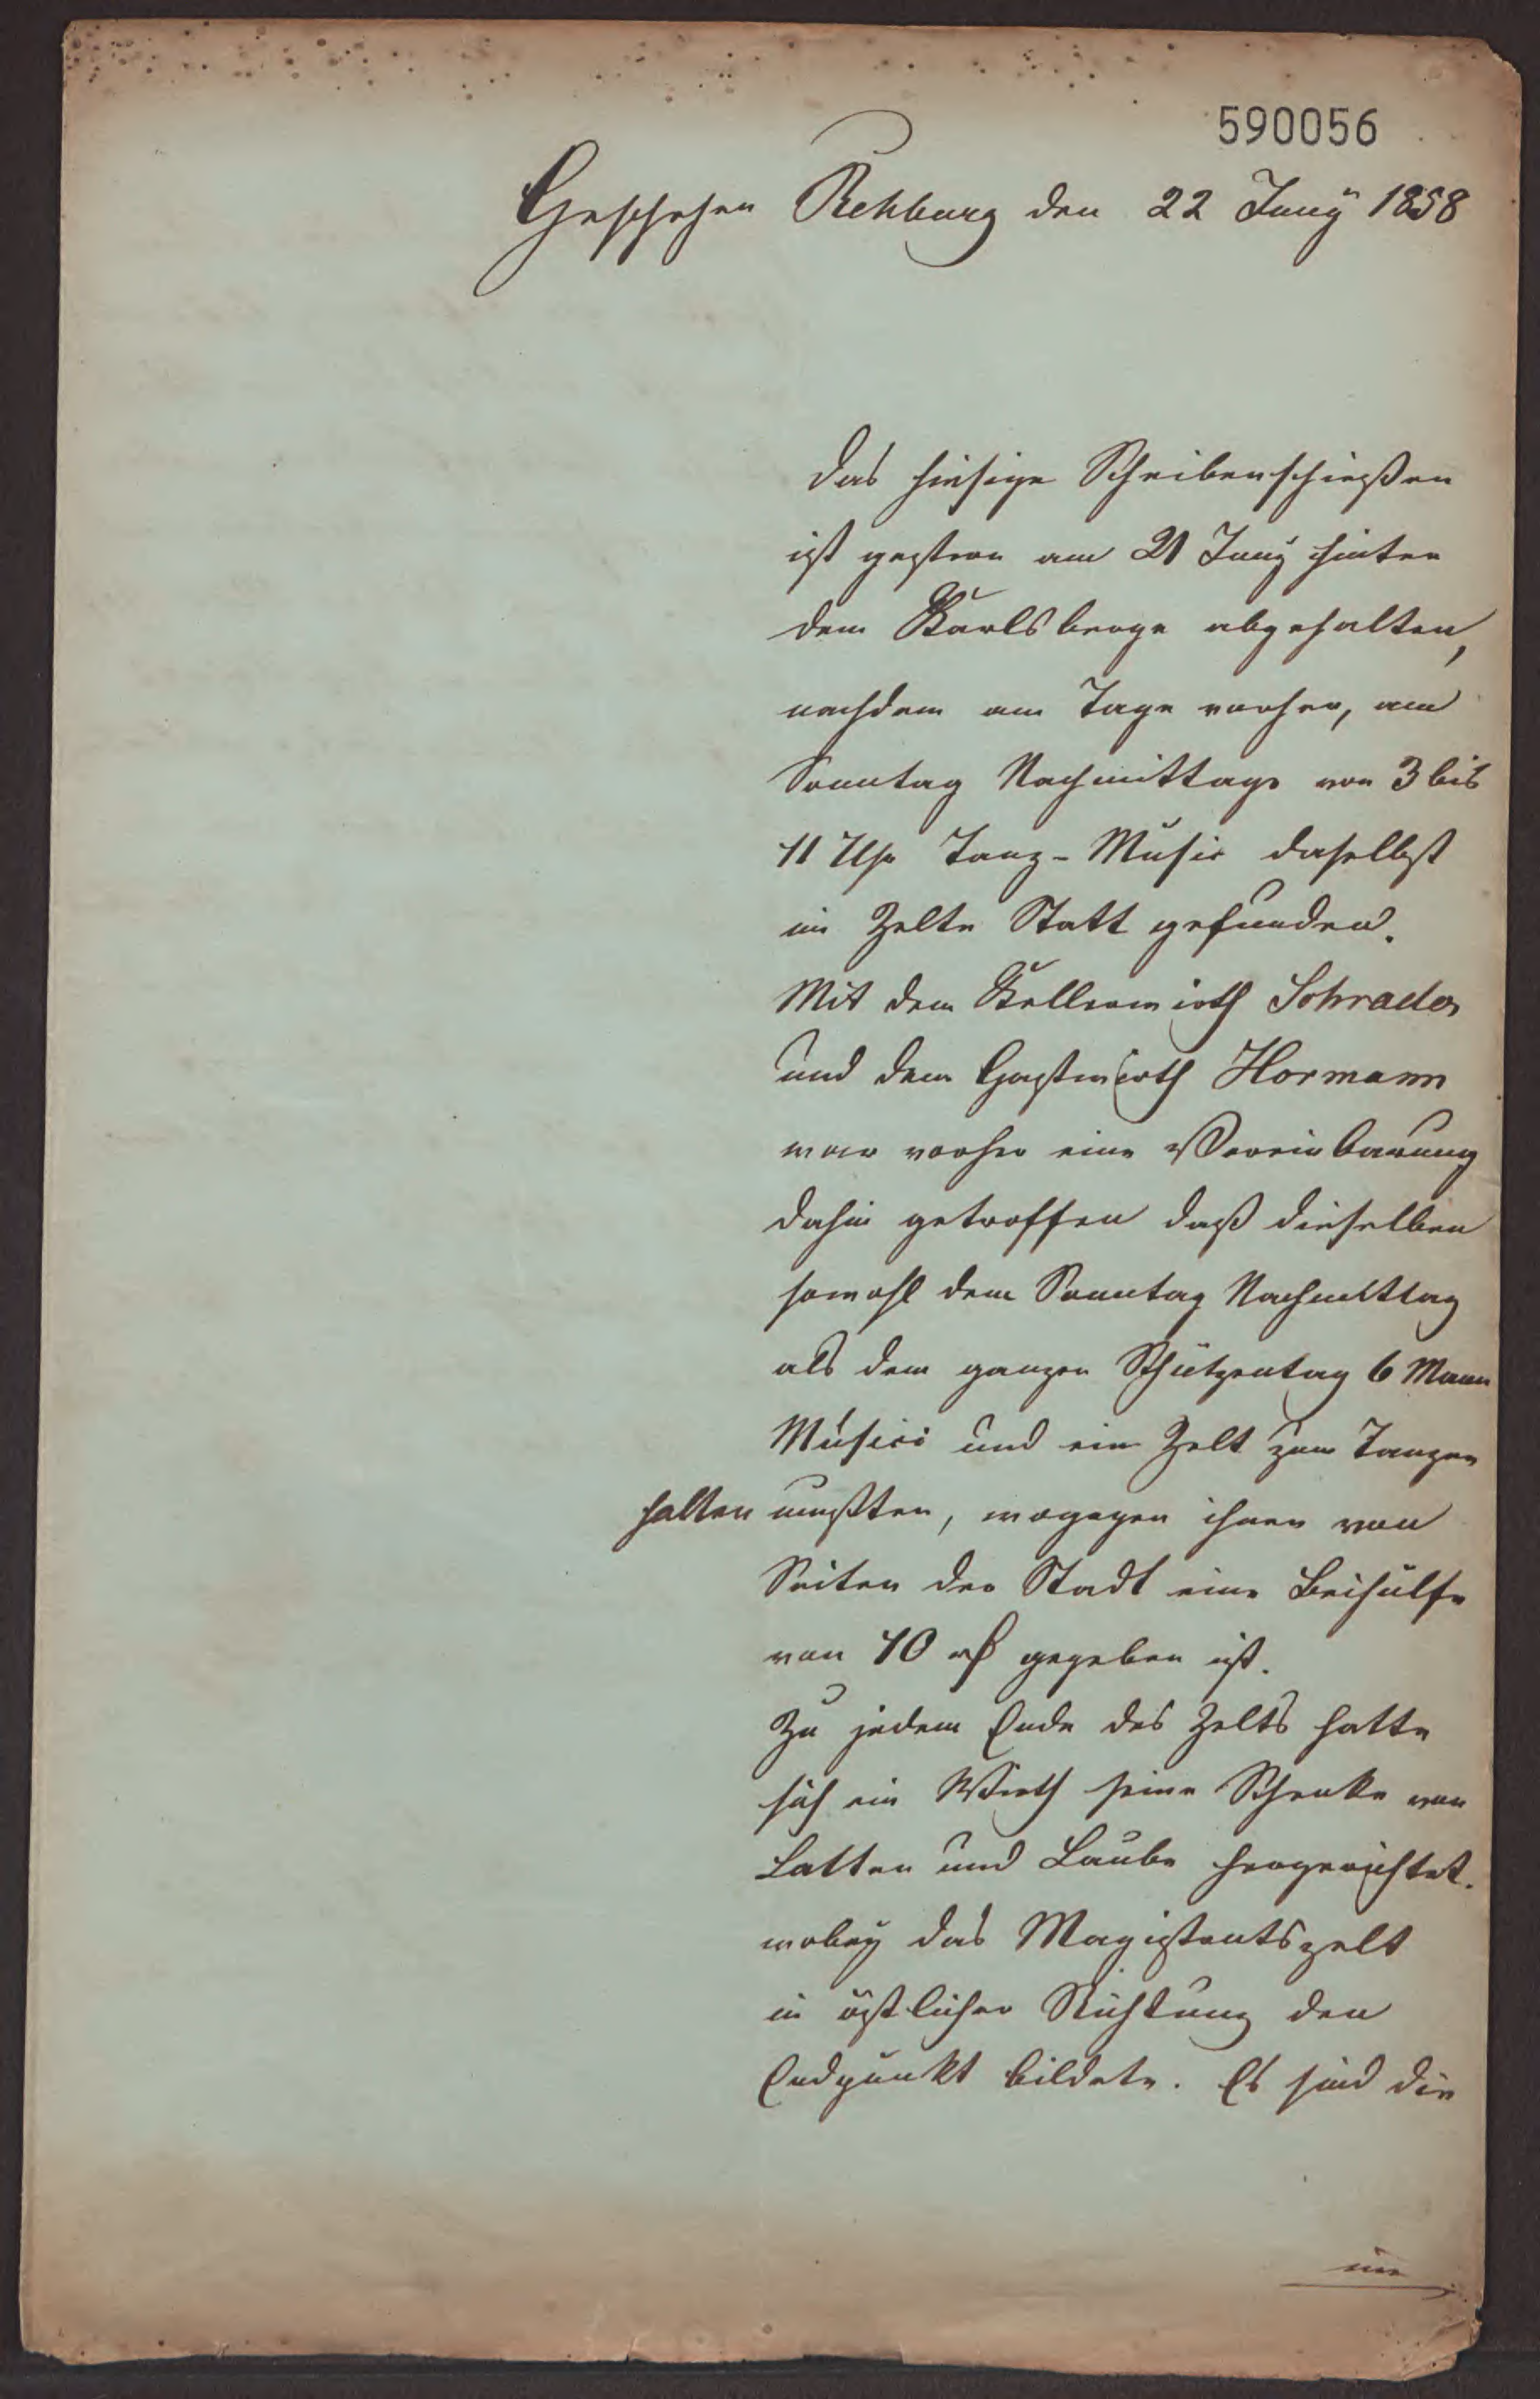 590056
Geschehen Rehburg den 22 Juny 1858
Das hiesige Scheibenschießen
ist gestern am 21 Juny hinter
dem Karlsberge abgehalten,
nachdem am Tage vorher, am
Sonntag Nachmittags von 3 bis
11 Uhr Tanz-Music daselbst
im Zelte Statt gefunden.
Mit dem Kellerwirth Schrader
und dem Gastwirth Hormann
war vorher eine Vereinbarung
dahin getroffen daß dieselben
sowohl den Sonntag Nachmittag
als den ganzen Schützentag 6 Mann
Musici und ein Zelt zum Tanzen
halten mußten, wogegen ihnen von
Seiten der Stadt eine Beihülfe
von 10 rβ gegeben ist.
Zu jedem Ende des Zelts hatte
sich ein Wirth seine Schenke von
Latten und Laube hergerichtet.
wobey das Magistratszelt
in östlicher Richtung den
Endpunkt bildete. Es sind die